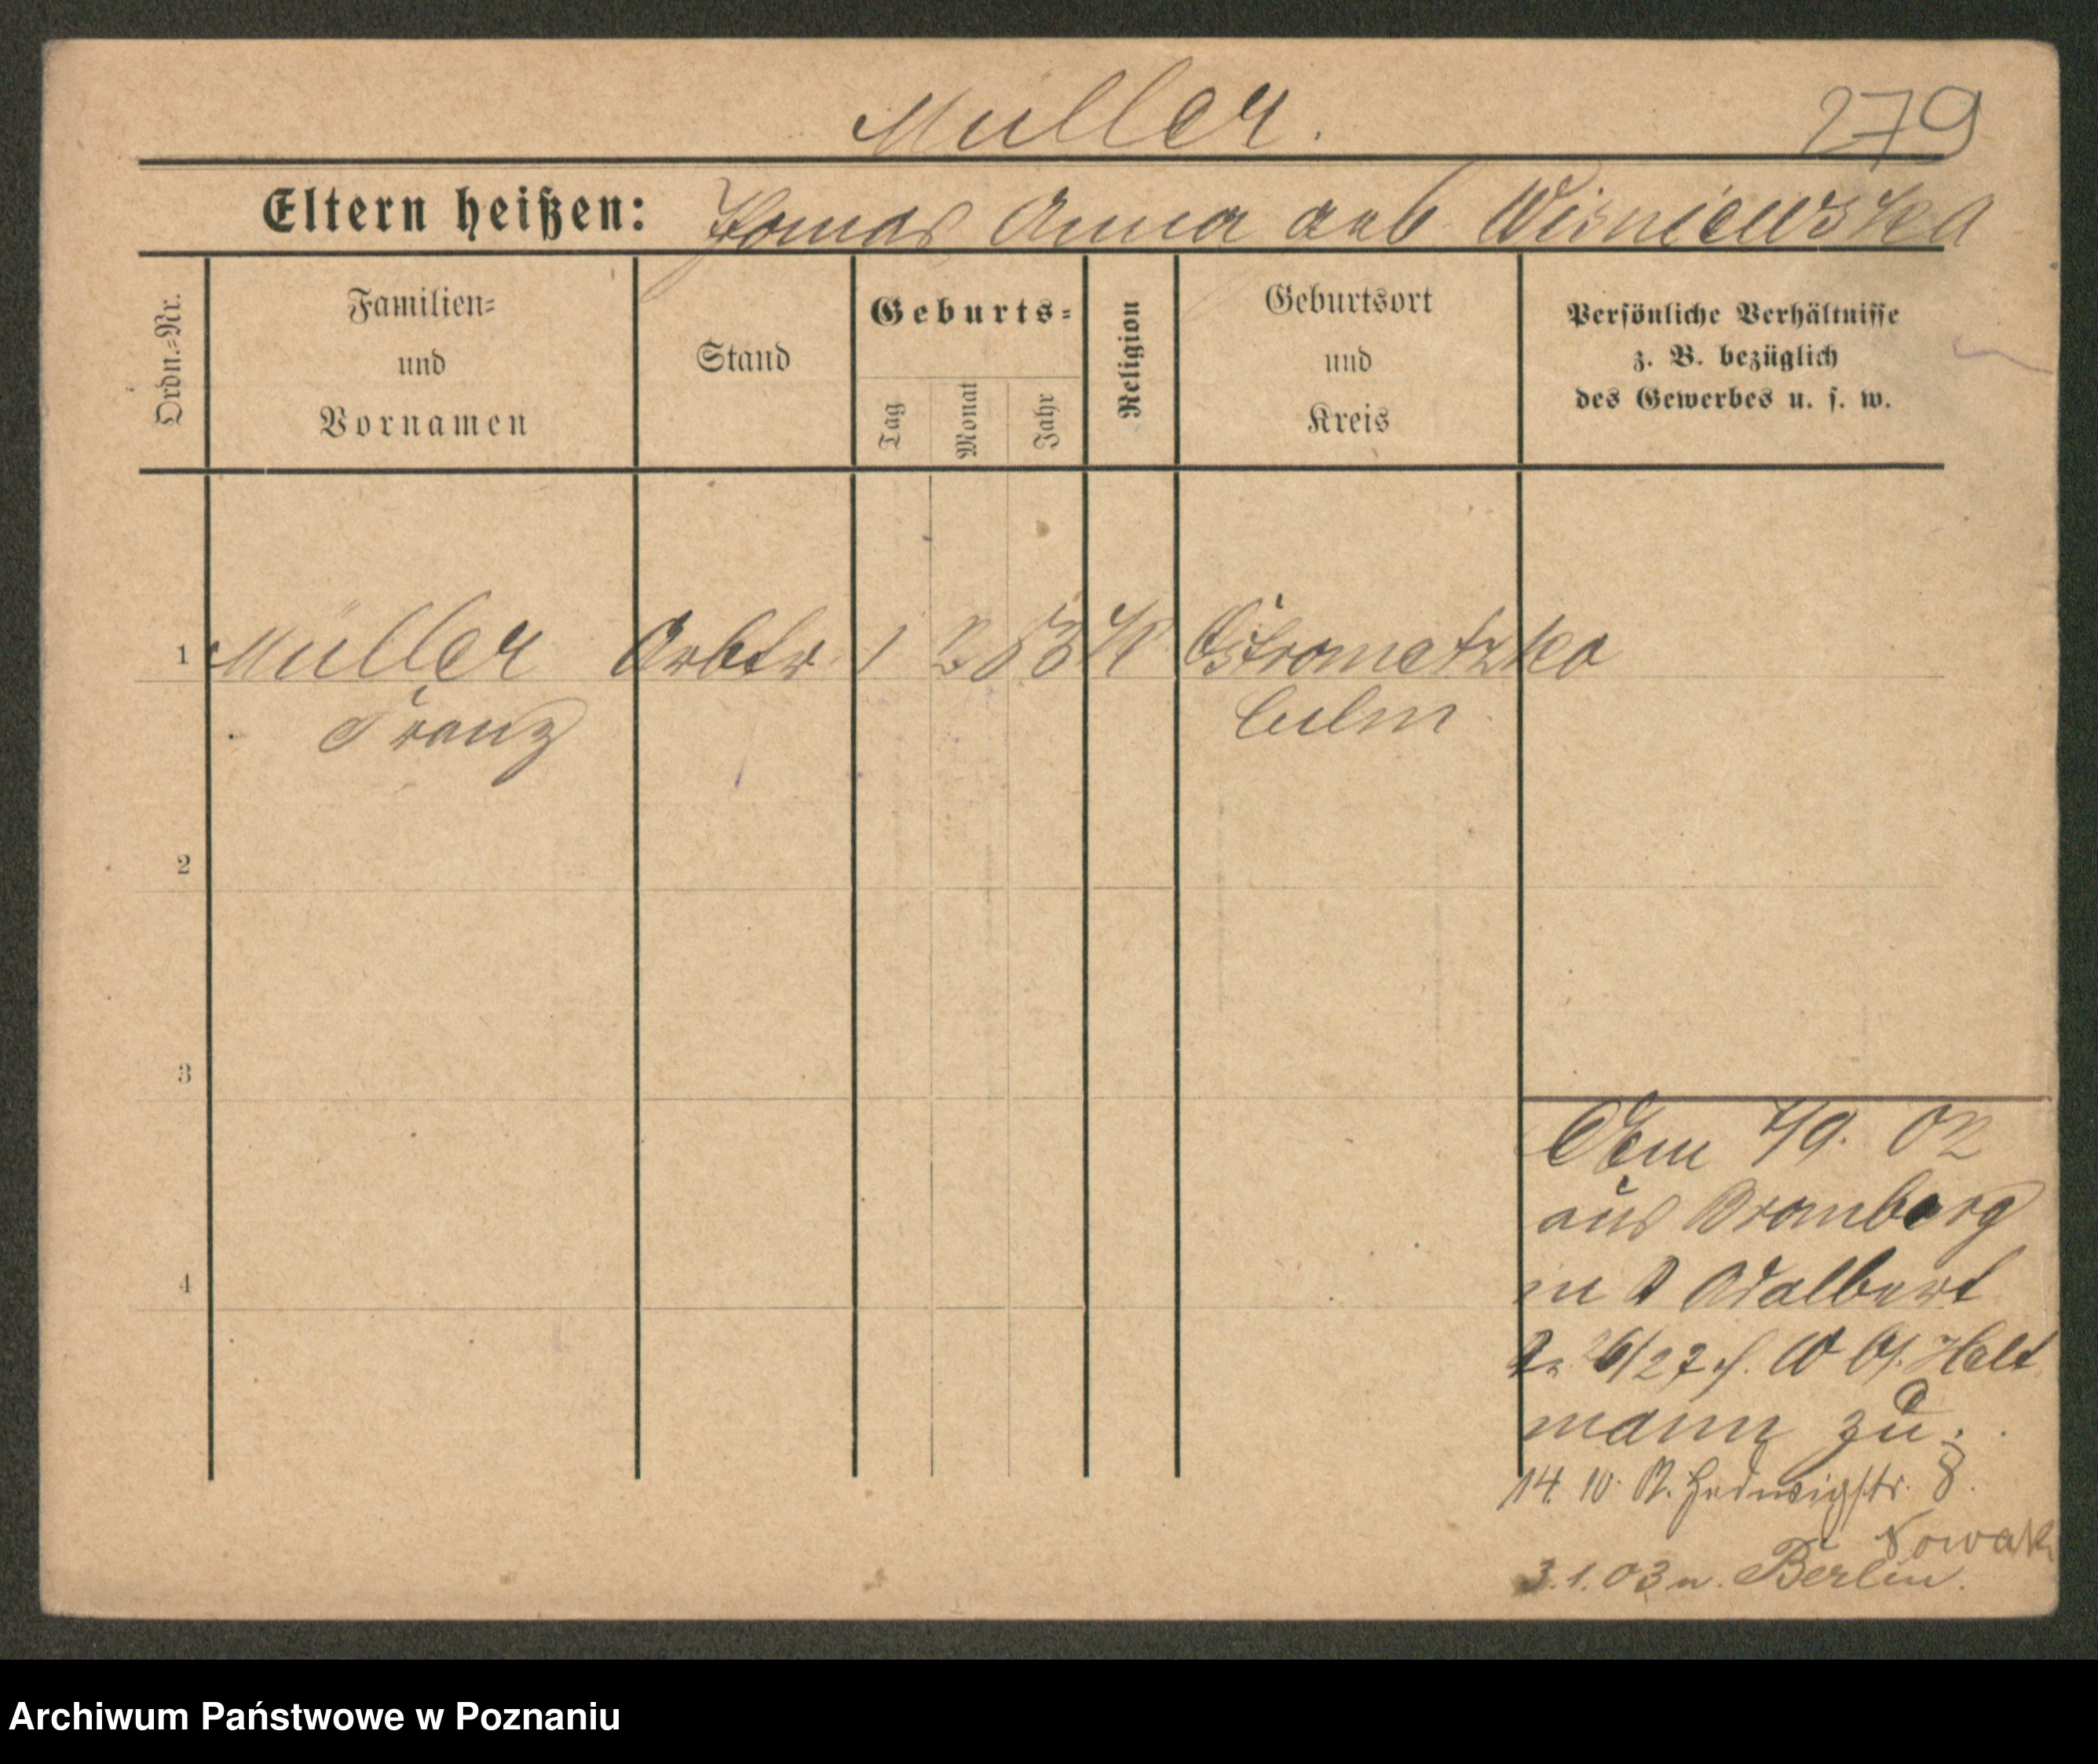 Muller. 279
Eltern heißen: Tomas Anna geb Wisniewska
Ordn.=Nr.
Familien=
und
Vornamen
Stand
Geburts=
Tag
Monat
Jahr
Religion
Geburtsort
und
Kreis
Persönliche Verhältnisse
z. B. bezüglich
des Gewerbes u. s. w.
1 Müller Arbtr 1 2 53 K Ostrometzko
Franz Culm
2
3
4
Den 4/9. 02
aus Bromberg
in Adalbert
26/27 Helt
mann zu.
14. 10. Hedwigstr. 8.
Nowak
3. 1. 03 n. Berlin.
Archiwum Państwowe w Poznaniu